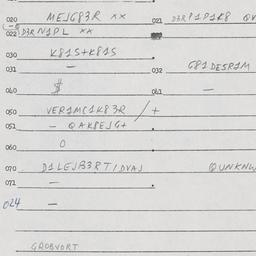 020 MEJG83R xx 021 D3RP1P1K8
022 D3RN1PL xx
030 K81S+K81S
031 — 032 G81DESR1M
040 $ 041 —
050 VER1MC1K83R / +
051 — QAK8EJG+
060 O
070 D1LEJB3RT/DVAJ QUNKNW
071 —
024 —
GROBVORT